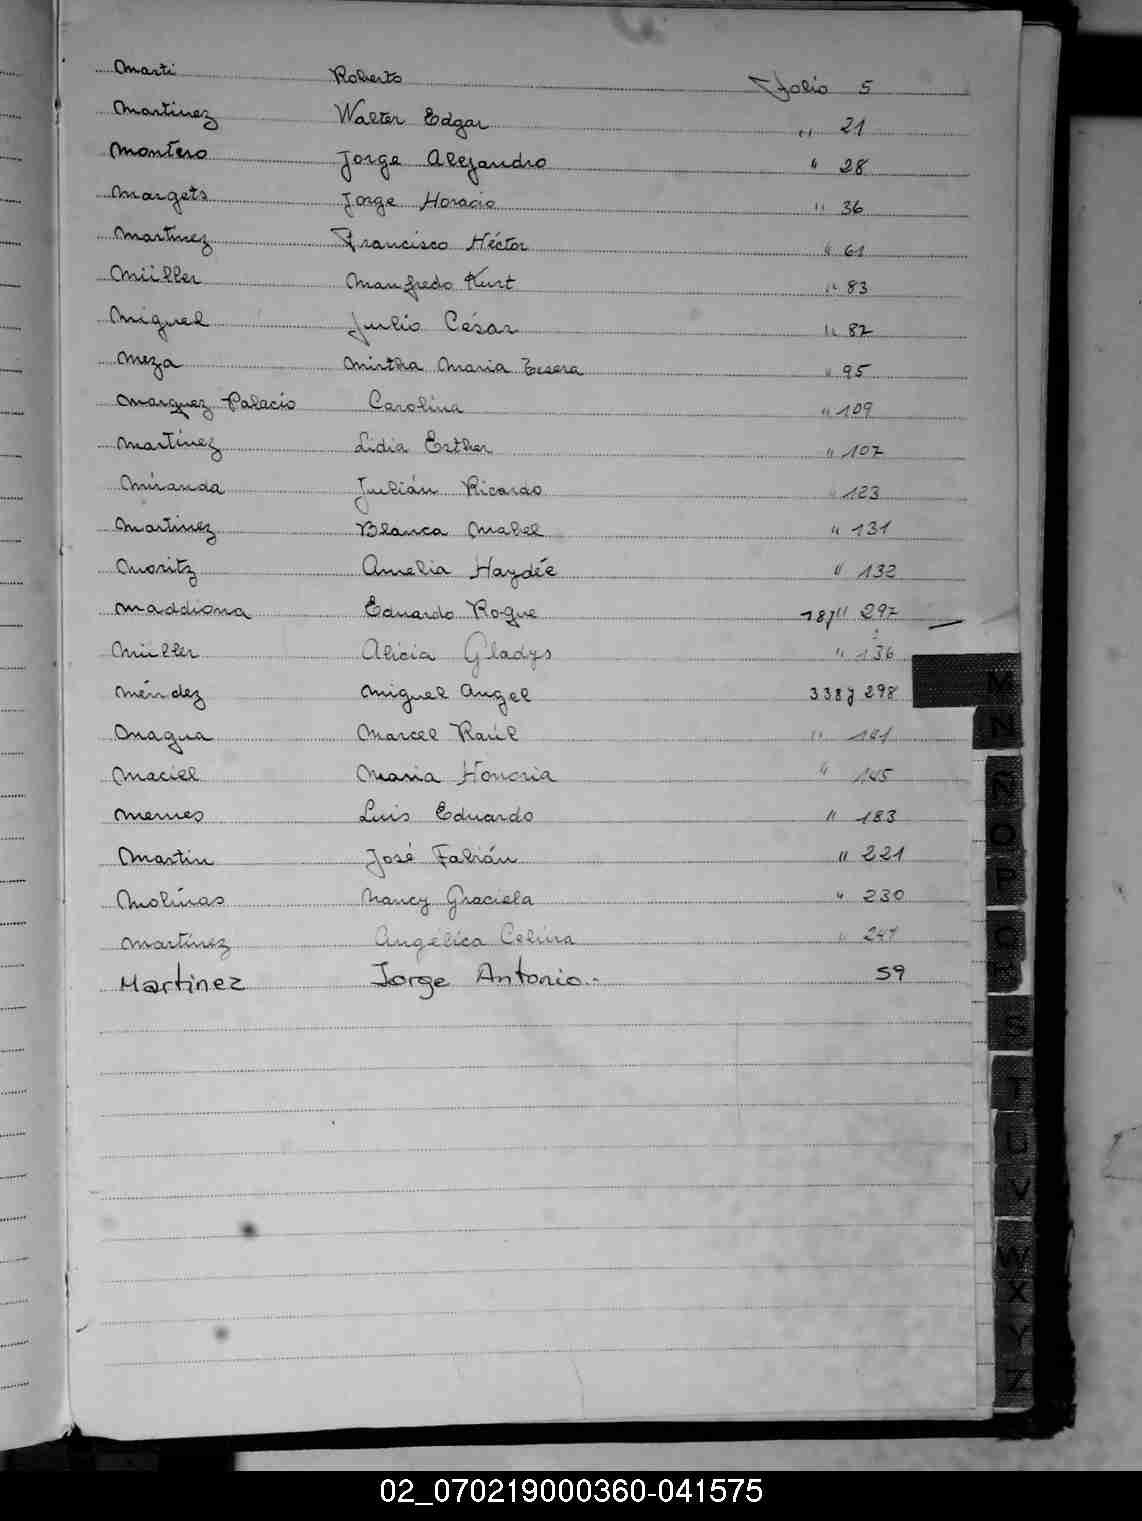 Marti Roberto Folio 5
Martinez Walter Edgar " 21
Montero Jorge Alejandro " 28
Margets Jorge Horacio " 36
Martinez Francisco Héctor " 61
Müller Manfredo Kurt " 83
Miguel Julio César " 87
Meza Mirtha Maria Teresa " 95
Marquez Palacio Carolina " 109
Martínez Lidia Esther " 107
Miranda Julián Ricardo " 123
Martinez Blanca Mabel " 131
Moritz Amelia Haydée " 132
Maddiona Eduardo Roque 187" 297
Müller Alicia Gladys " 136
Méndez Miguel Angel 338 y 298
Magua Marcel Raúl " 141
Maciel Maria Honoria " 145
Memes Luis Eduardo " 183
Martin José Fabián " 221
Molinas Nancy Graciela " 230
Martínez Angélica Celina " 247
Martinez Jorge Antonio.- 59
M
N
Ñ
O
P
Q
S
T
U
V
W
X
Y
Z
02_070219000360-041575